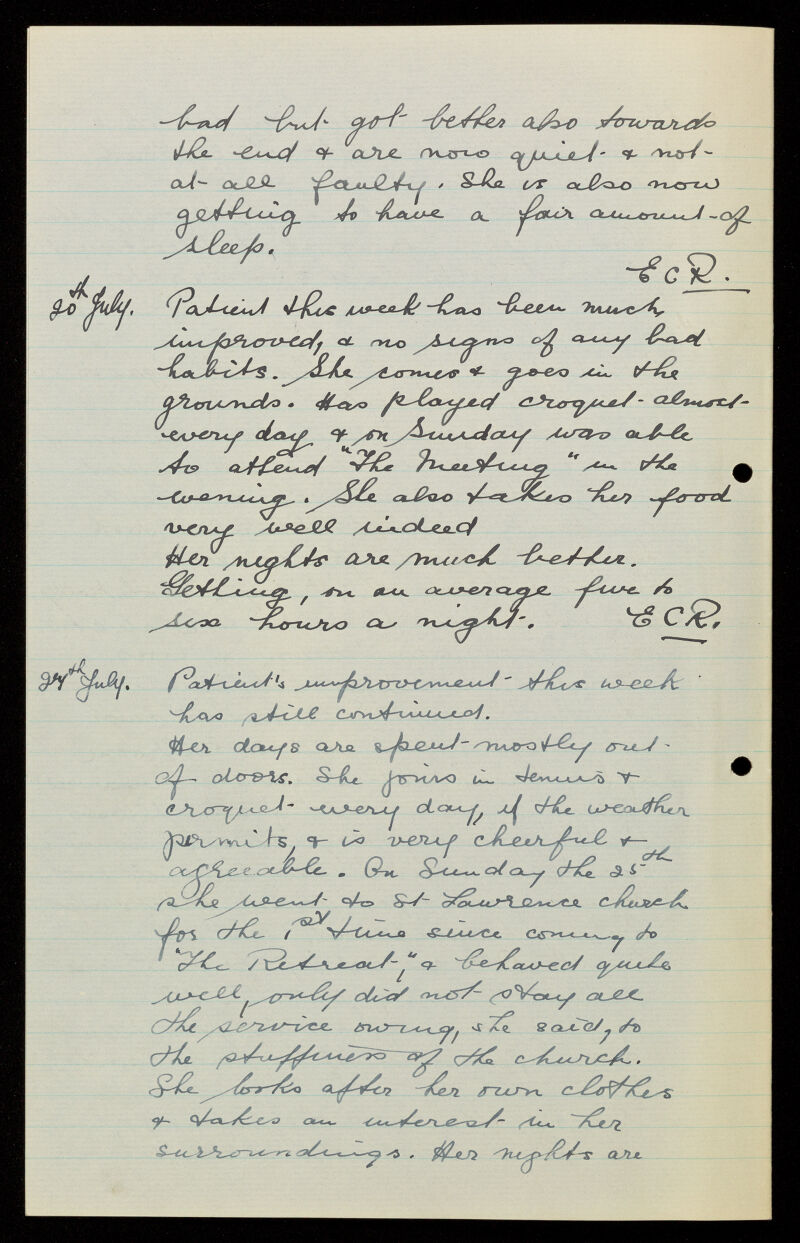 bad but got better also towards
the end & are now quiet & not
at all faulty. She is also now
getting to have a fair amount of
sleep.
E C R.
20th July. Patient this week has been much
improved, & no signs of any bad
habits. She comes & goes in the
grounds. Has played croquet almost
every day & on Sunday was able
to attend "The Meeting" in the
evening. She also takes her food
very well indeed
Her nights are much better.
Getting, on an average five to
six hours a night. E C R.
27th July. Patient's improvement this week
has still continued.
Her days are spent mostly out
of doors. She joins in tennis &
croquet every day, if the weather
permits, & is very cheerful &
agreeable. On Sunday the 25th
she went to St Lawrence church
for the 1st time since coming to
"The Retreat", & behaved quite
well, only did not stay all
the service owing, she said, to
the stuffiness of the church.
She looks after her own clothes
& takes an interest in her
surroundings. Her nights are